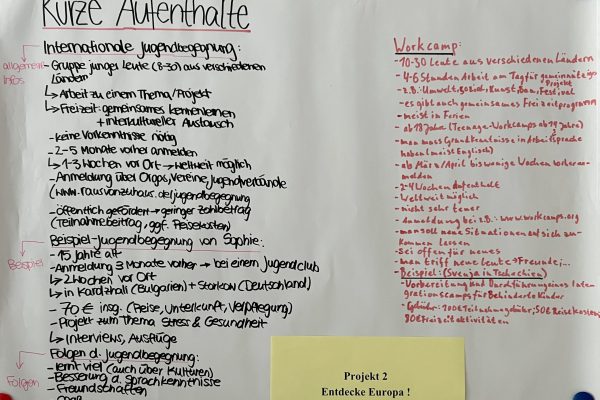 Kurze Aufenthalte
allgemeine Infos
Internationale Jugendbegegnung:
- Gruppe junge Leute (8-30) aus verschiedenen
Ländern
↳ Arbeit zu einem Thema/Projekt
↳ Freizeit: gemeinsames kennenlernen
+ interkultureller Austausch
- keine Vorkenntnisse nötig
- 2-5 Monate vorher anmelden
↳ 1-3 Wochen vor Ort → weltweit möglich
- Anmeldung über Orgas, Vereine, Jugendverbände
(www.rausvonzuhaus.de/jugendbegegnung
- öffentlich gefördert → geringer Zahlbetrag
(Teilnahmebeitrag, ggf. Reisekosten)
Beispiel
Beispiel-Jugendbegegnung von Sophie:
- 15 Jahre alt
- Anmeldung 3 Monate vorher → bei einem Jugendclub
↳ 2 Wochen vor Ort
↳ in Kardzhali (Bulgarien) + Storkow (Deutschland)
- 70 € insg. (Reise, Unterkunft, Verpflegung)
- Projekt zum Thema Stress & Gesundheit
↳ Interviews, Ausflüge
Folgen
Folgen d. Jugendbegegnung:
- lernt viel (auch über Kulturen)
- Besserung d. Sprachkenntnisse
- Freundschaften
Workcamp:
- 10-30 Leute aus verschiedenen Ländern
- 4-6 Stunden Arbeit am Tag für gemeinnütziges
Projekt
- z.B.: Umwelt, sozial, Kunst, Bau, Festival
- es gibt auch gemeinsames Freizeitprogramm
- meist in Ferien
- ab 18 Jahre (Teenage-Workcamps ab 14 Jahre)
- man muss Grundkenntnisse in Arbeitssprache
haben (meist Englisch)
- ab März/April bis wenige Wochen vorher an-
melden
- 2-4 Wochen Aufenthalt
- Weltweit möglich
- nicht sehr teuer
- Anmeldung bei z.B.: www.workcamps.org
- man soll neue Situationen auf sich zu-
kommen lassen
- Bei offen für neues
- man trifft neue Leute → Freunde,...
- Beispiel: (Svenja in Tschechien)
- Vorbereitung und Durchführung eines Inte-
grationscamps für Behinderte Kinder
- Gebühr: 100€ Teilnahmegebühr; 50€ Reisekosten;
80€ Freizeitaktivitäten
Projekt 2
Entdecke Europa !